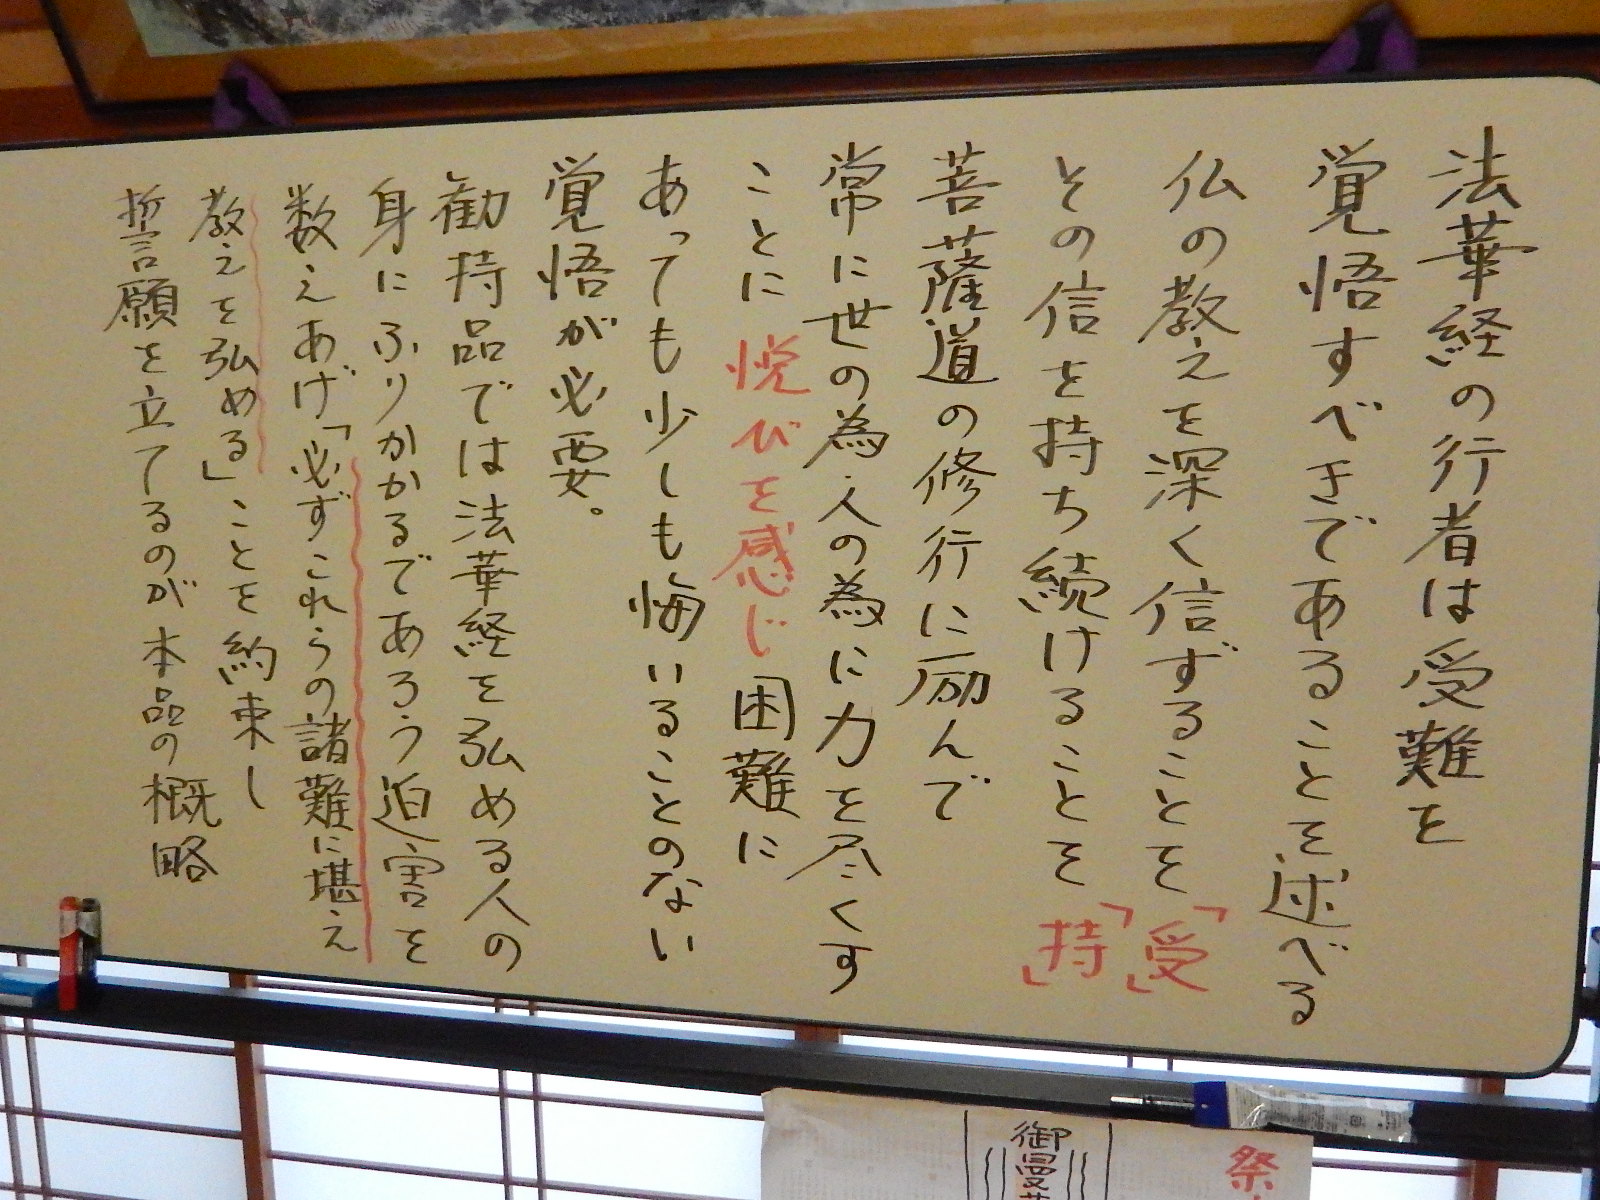 法華経の行者は受難を
覚悟すべきであることを述べる
仏の教えを深く信ずることを「受」
その信を持ち続けることを「持」
菩薩道の修行に励んで
常に世の為、人の為に力を尽くす
ことに悦びを感じ困難に
あっても少しも悔いることのない
覚悟が必要。
勧持品では法華経を弘める人の
身にふりかかるであろう迫害を
数えあげ「必ずこれらの諸難に堪え
教えを弘める」ことを約束し
誓願を立てるのが本品の概略
祭
御曼